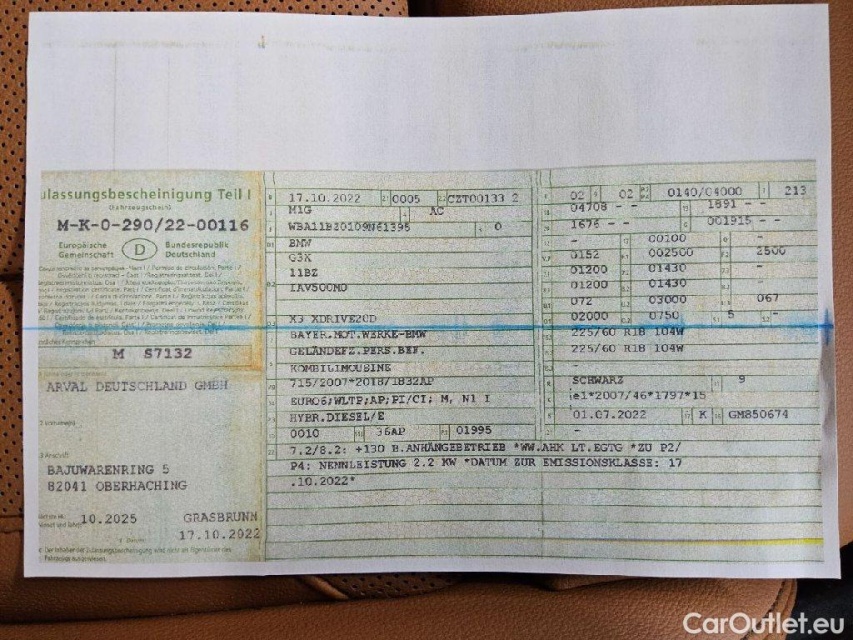 Zulassungsbescheinigung Teil I
(Fahrzeugschein)
M-K-0-290/22-00116
Europäische Gemeinschaft D Bundesrepublik Deutschland
M S7132
ARVAL DEUTSCHLAND GMBH
BAJUWARENRING 5
82041 OBERHACHING
10.2025 GRASBRUNN
17.10.2022
17.10.2022 0005 CZT00133 2
M1G AC
WBA11BZ0109N61395 0
BMW
G3X
11BZ
IAV500M0
X3 XDRIVE20D
BAYER.MOT.WERKE-BMW
GELÄNDEFZ.PERS.BEF.
KOMBILIMOUSINE
715/2007*2018/1832AP
EURO6;WLTP;AP;PI/CI; M, N1 I
HYBR.DIESEL/E
0010 36AP 01995
02 02 0140/04000 213
04708 - - 1891 - -
1676 - - 001915 - -
- 00100 -
0152 002500 2500
01200 01430 -
01200 01430 -
072 03000 067
02000 0750 5 -
225/60 R18 104W
225/60 R18 104W
-
SCHWARZ 9
e1*2007/46*1797*15
01.07.2022 K GM850674
-
7.2/8.2: +130 B.ANHÄNGEBETRIEB *WW.AHK LT.EGTG *ZU P2/
P4: NENNLEISTUNG 2.2 KW *DATUM ZUR EMISSIONSKLASSE: 17
.10.2022*
CarOutlet.eu